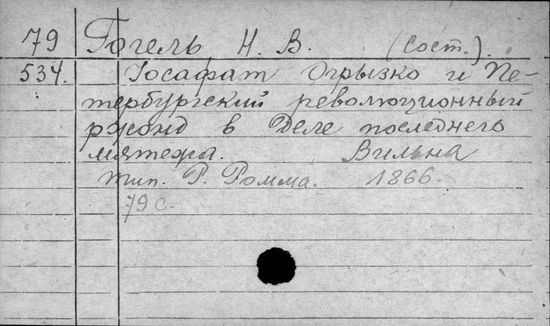 79 Гогель Н. В. (сост.).
534. Иосафат Огрызко и Пе-
тербургский революционный
ржонд в Деле последнего
мятежа. Вильна
тип. Р. Ромма. 1866.
79 с.